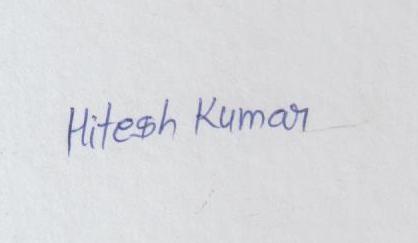 Hitesh Kumar